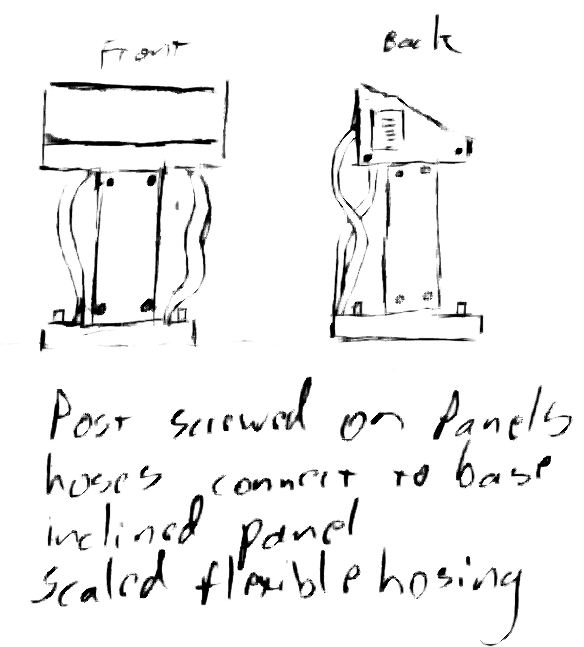 Front
Back
Post screwed on Panels
hoses connect to base
inclined panel
Scaled flexible hosing